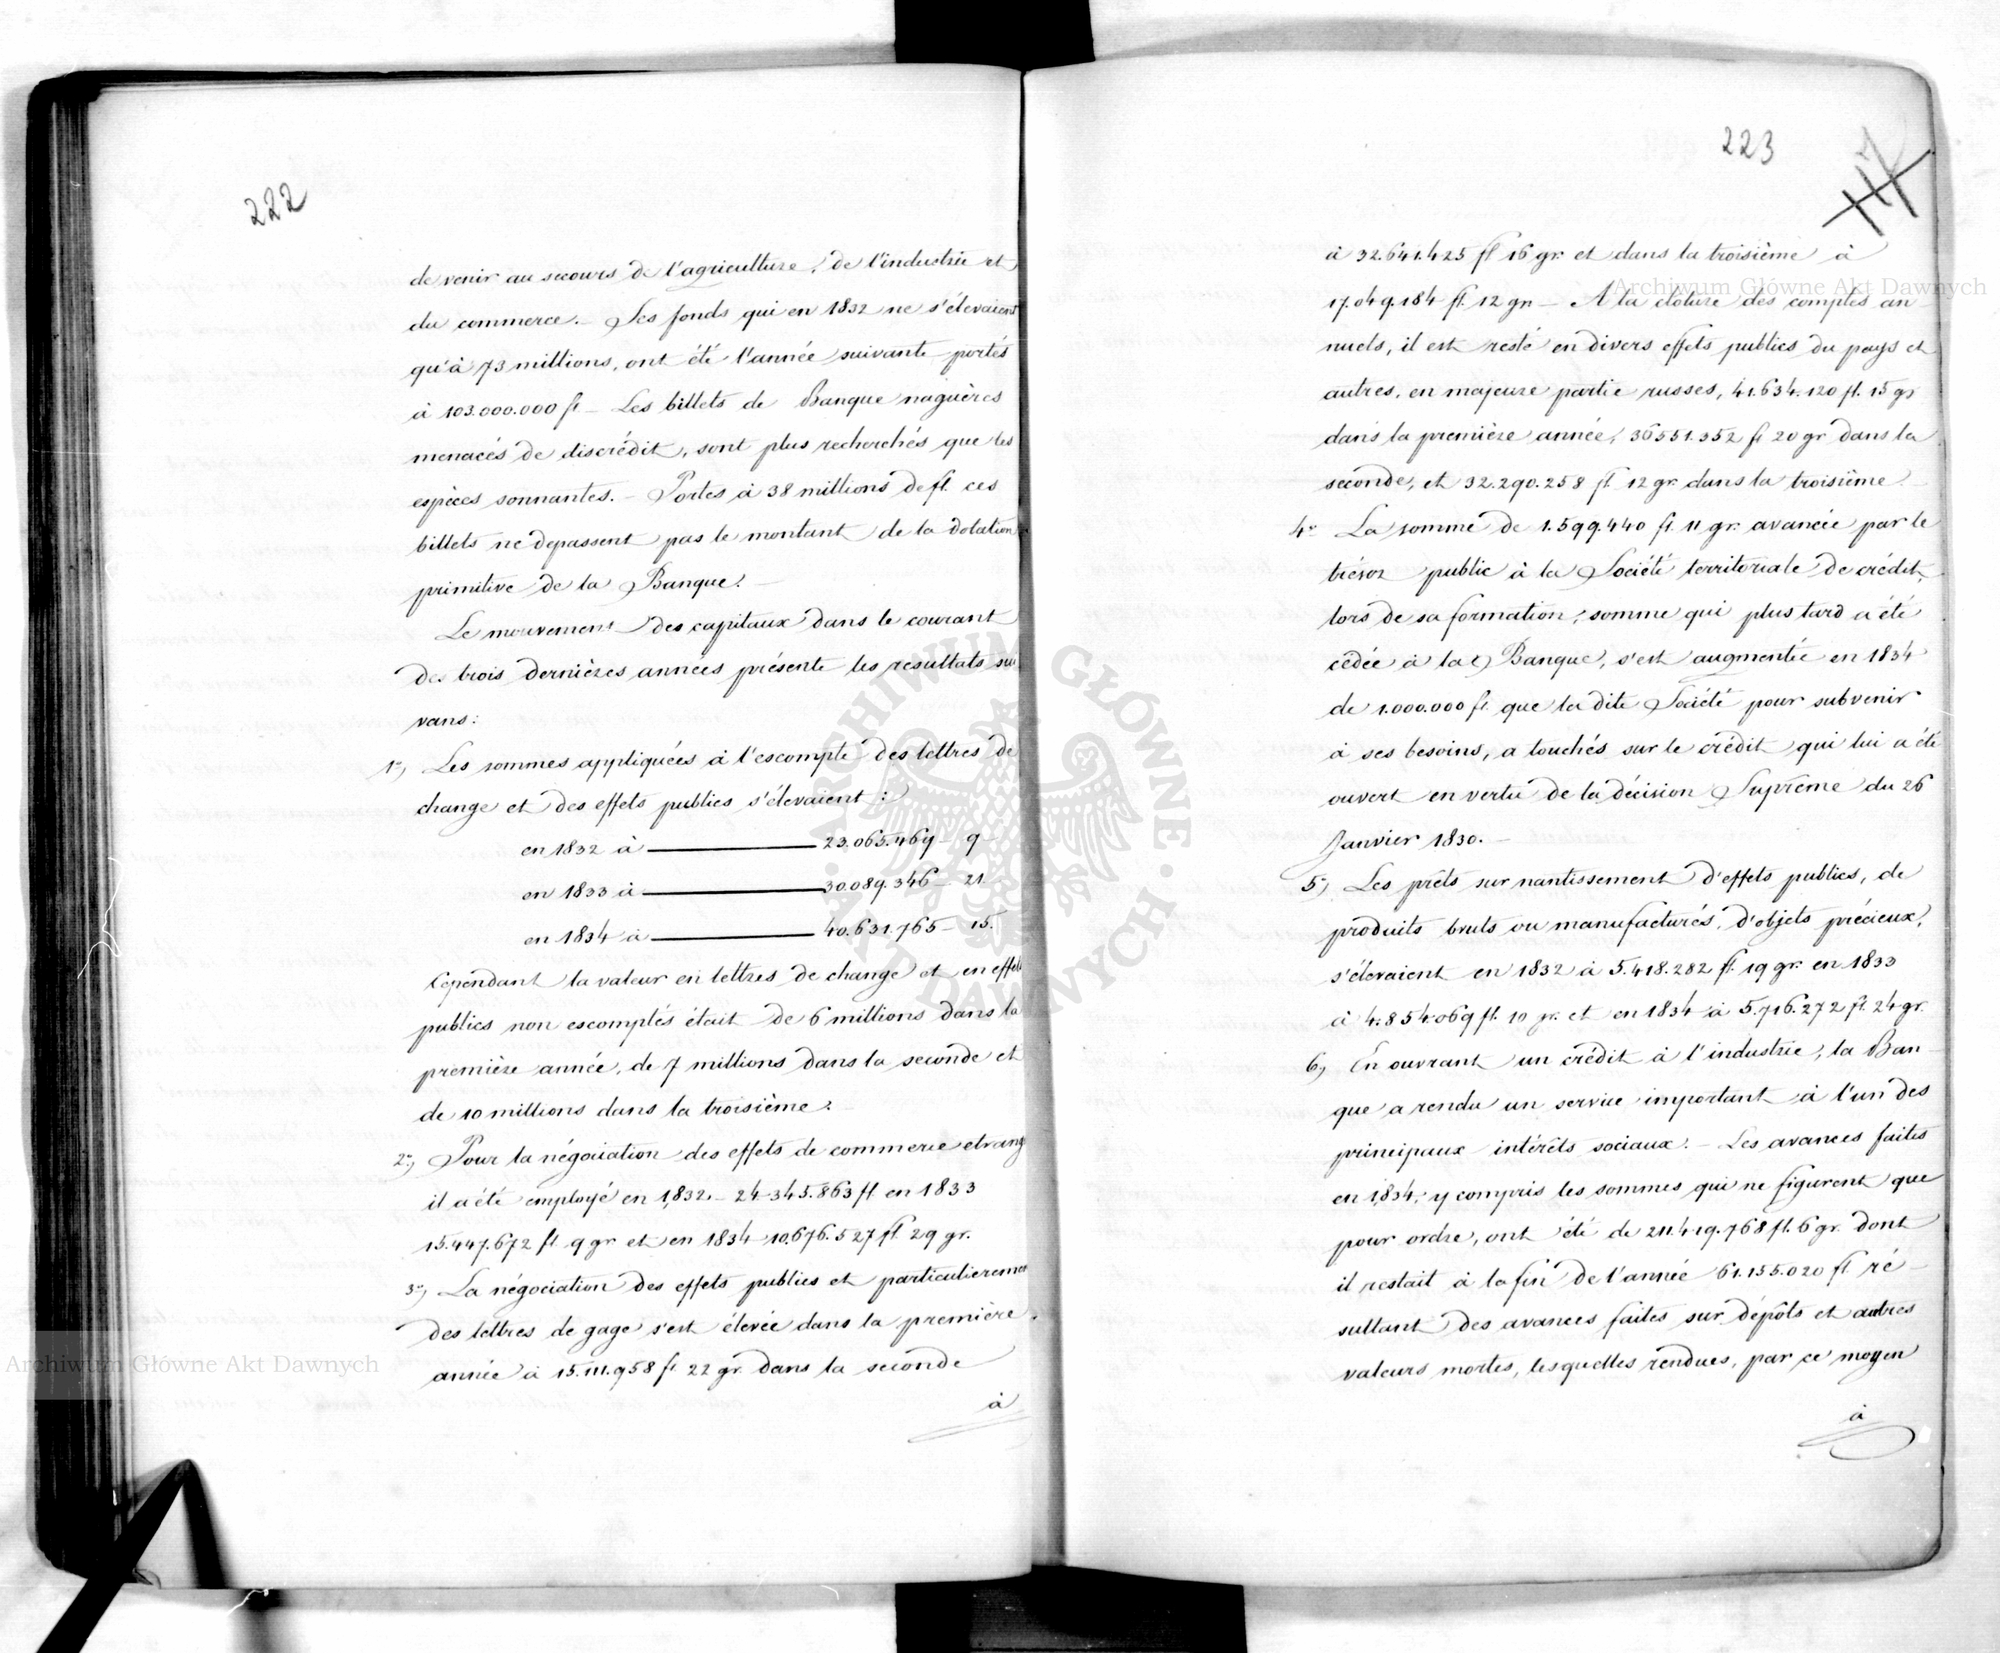 222
de venir au secours de l'agriculture, de l'industrie et
du commerce. – Ses fonds qui en 1832 ne s'élevaient
qu'à 73 millions, ont été l'année suivante portés
à 103.000.000 fl – Les billets de Banque naguères
menacés de discrédit, sont plus recherchés que les
espèces sonnantes. – Portés à 38 millions de fl. ces
billets ne depassent pas le montant de la dotation
primitive de la Banque. –
Le mouvement des capitaux dans le courant
des trois dernières années présente les resultats sui
vans:
1°, Les sommes appliquées à l'escompte des lettres de
change et des effets publics s'élevaient:
en 1832 à 23.065.469 – 9 –
en 1833 à 30.089.346 – 21 –
en 1834 à 40.631.765 – 15.
Cependant la valeur en lettres de change et en effets
publics non escomptés était de 6 millions dans la
première année, de 7 millions dans la seconde et
de 10 millions dans la troisième. –
2°, Pour la négociation des effets de commerce etrang
il a été employé en 1832 – 24.345.863 fl en 1833
15.447.672 fl 9 gr et en 1834 10.676.527 fl. 29 gr.
3°, La négociation des effets publics et particulierement
des lettres de gage s'est élevée dans la première
année à 15.111.958 fl 22 gr. dans la seconde
à
223
117
à 32.641.425 fl 16 gr. et dans la troisième à
17.049.184 fl. 12 gr – A la cloture des comptes an
nuels, il est resté en divers effets publics du pays et
autres, en majeure partie russes, 41.634.120 fl. 15 gr
dans la première année, 36551.352 fl 20 gr dans la
seconde, et 32.290.258 fl 12 gr. dans la troisième
4° La somme de 1.599.440 fl. 11 gr. avancée par le
trésor public à la Société territoriale de crédit,
lors de sa formation, somme qui plus tard a été
cédée à la Banque, s'est augmentée en 1834
de 1.000.000 fl. que la dite Société pour subvenir
à ses besoins, a touchés sur le crédit qui lui a été
ouvert en vertu de la décision Suprême du 26
Janvier 1830. –
5°, Les prêts sur nantissement d'effets publics, de
produits bruts ou manufacturés, d'objets précieux,
s'élevaient en 1832 à 5.418.282 fl. 19 gr. en 1833
à 4.854.069 fl. 10 gr. et en 1834 à 5.716.272 fl. 24 gr.
6, En ouvrant un crédit à l'industrie, la Ban
que a rendu un service important à l'un des
principaux intérêts sociaux. – Les avances faites
en 1834, y compris les sommes qui ne figurent que
pour ordre, ont été de 211.419.768 fl. 6 gr. dont
il restait à la fin de l'année 61.155.020 fl ré –
sultant des avances faites sur dépôts et autres
valeurs mortes, lesquelles rendues, par ce moyen
à
Archiwum Główne Akt Dawnych
Archiwum Główne Akt Dawnych
ARCHIWUM GŁÓWNE AKT DAWNYCH